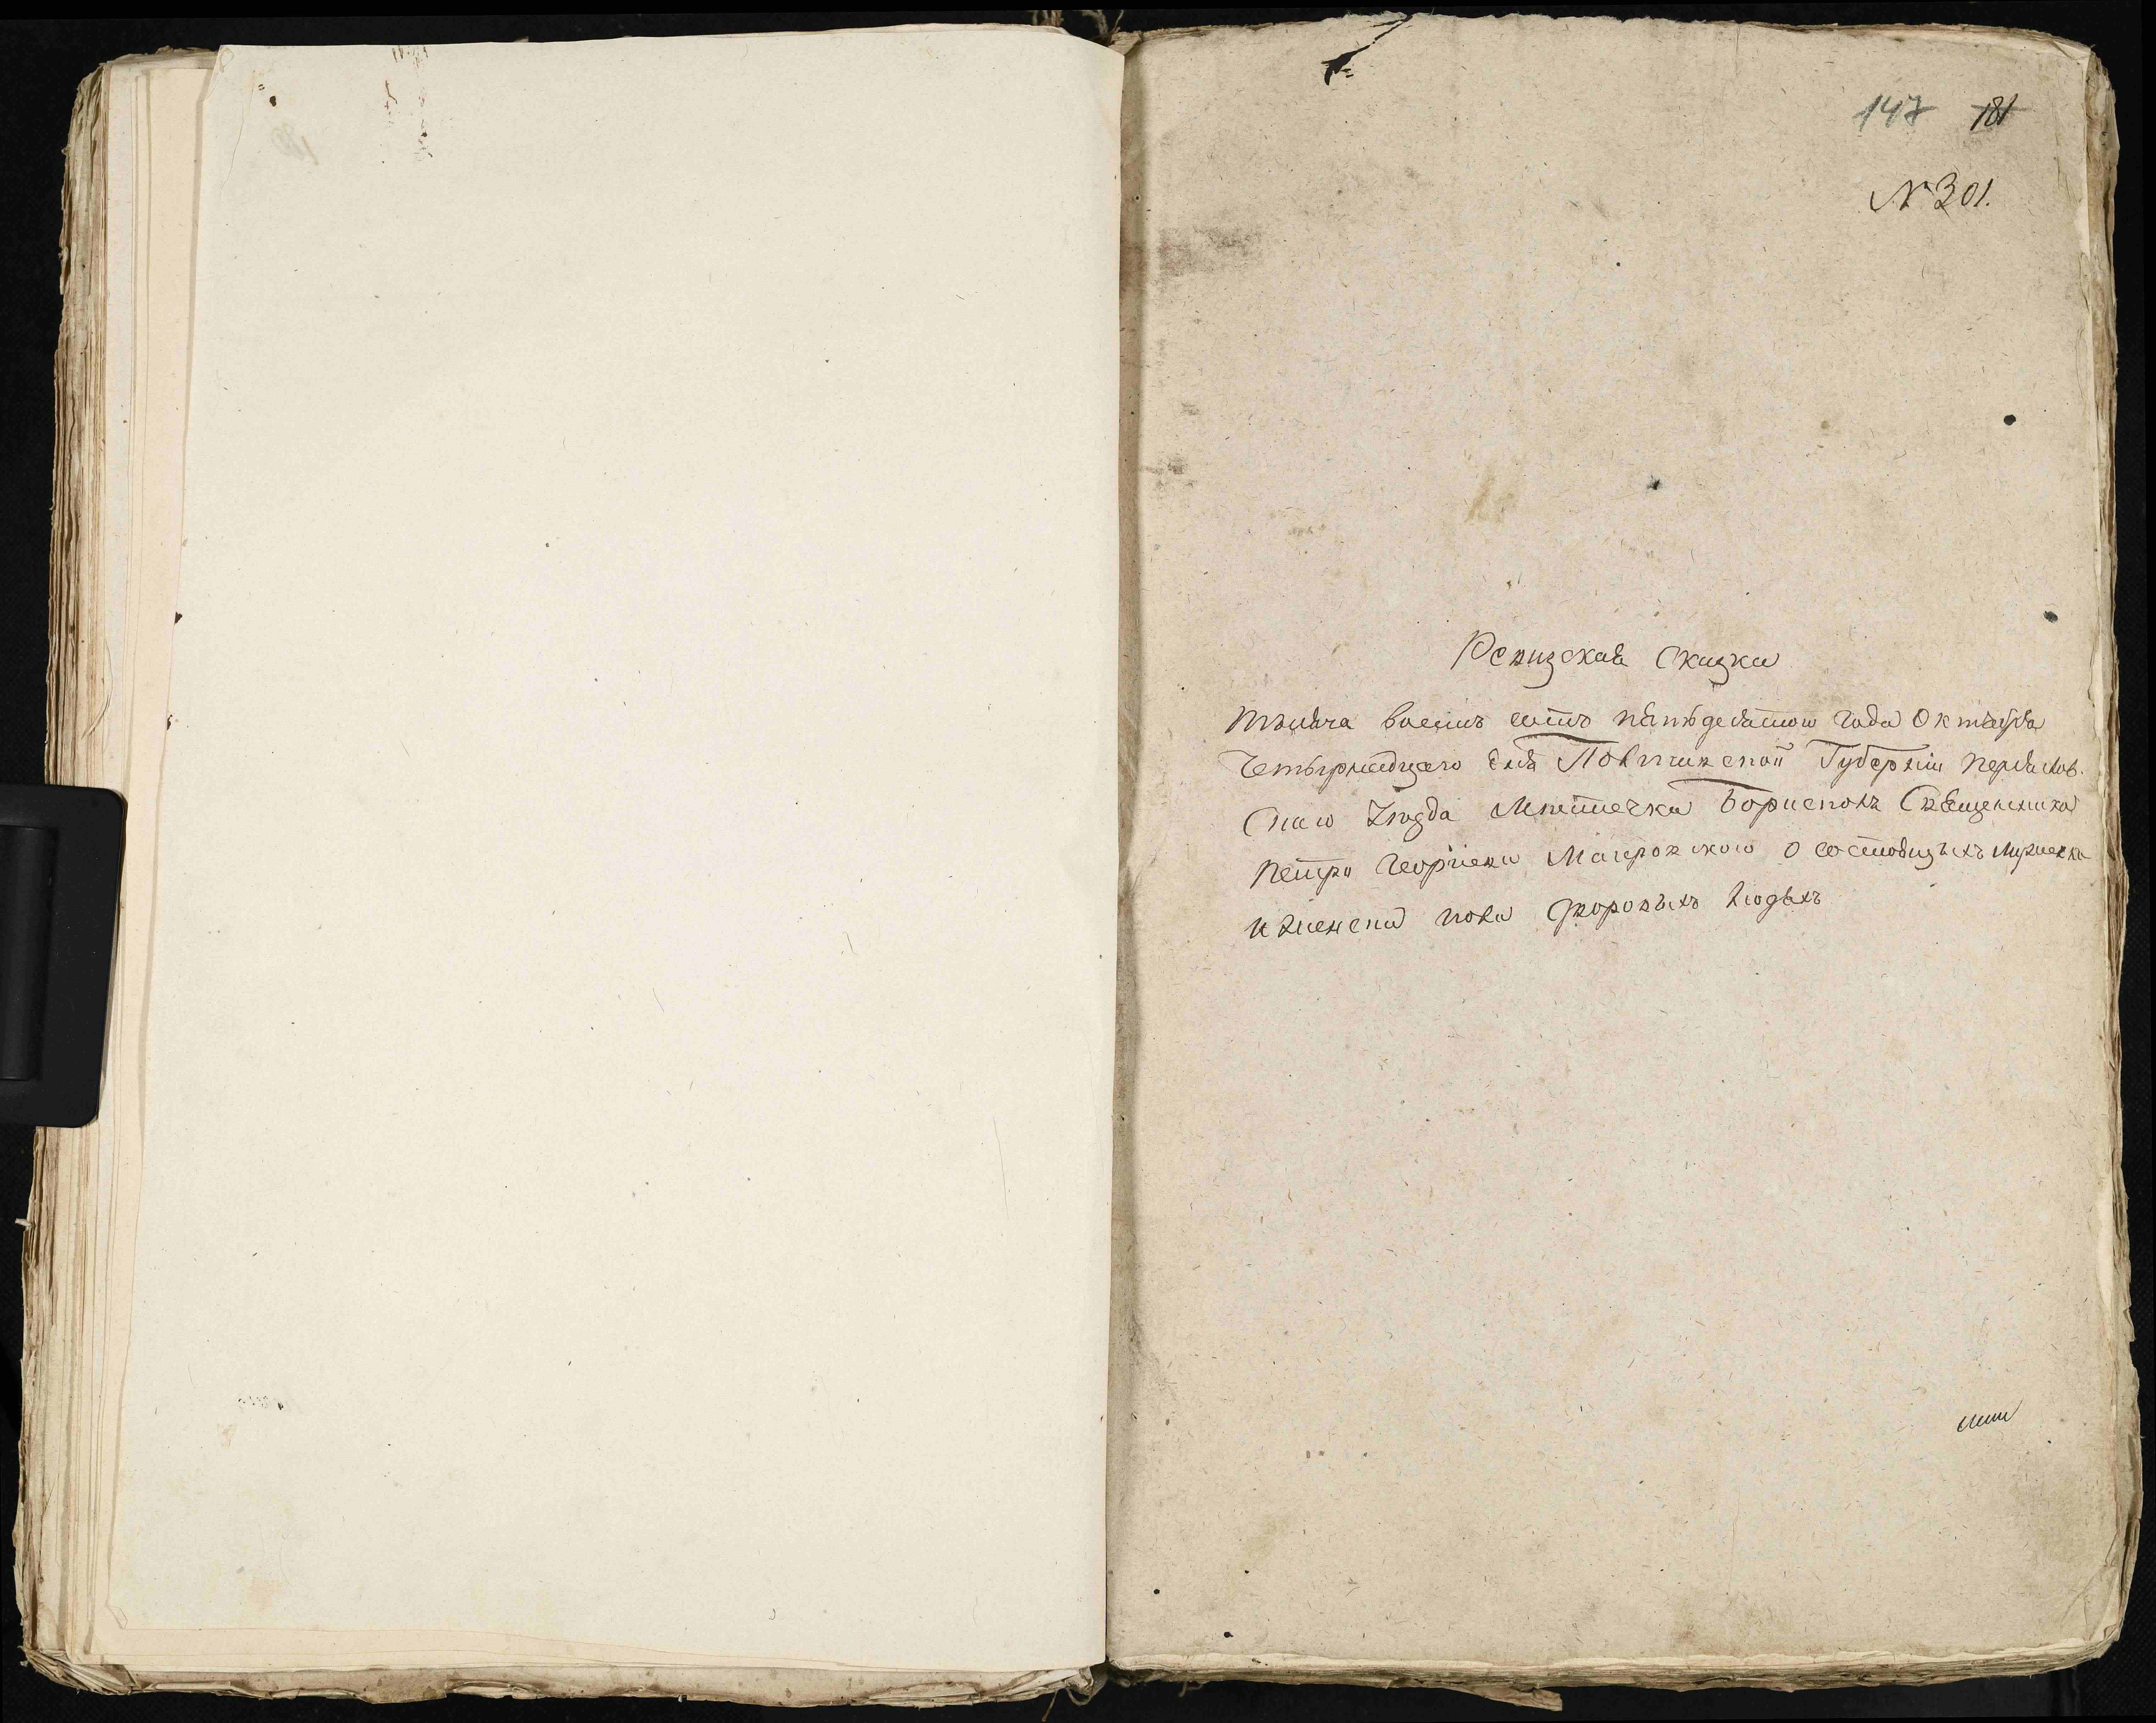 147 181
№ 301.
Ревизская Сказка
тысяча восемь сотъ пятьдесятого года Октября
Четырнадцаго дня Полтавской Губерніи Переяслов.
Скаго Уезда Местечка Борисполя Священника
Петра Георгіева о состоящихъ мужеска
и женска пола дворовыхъ людяхъ